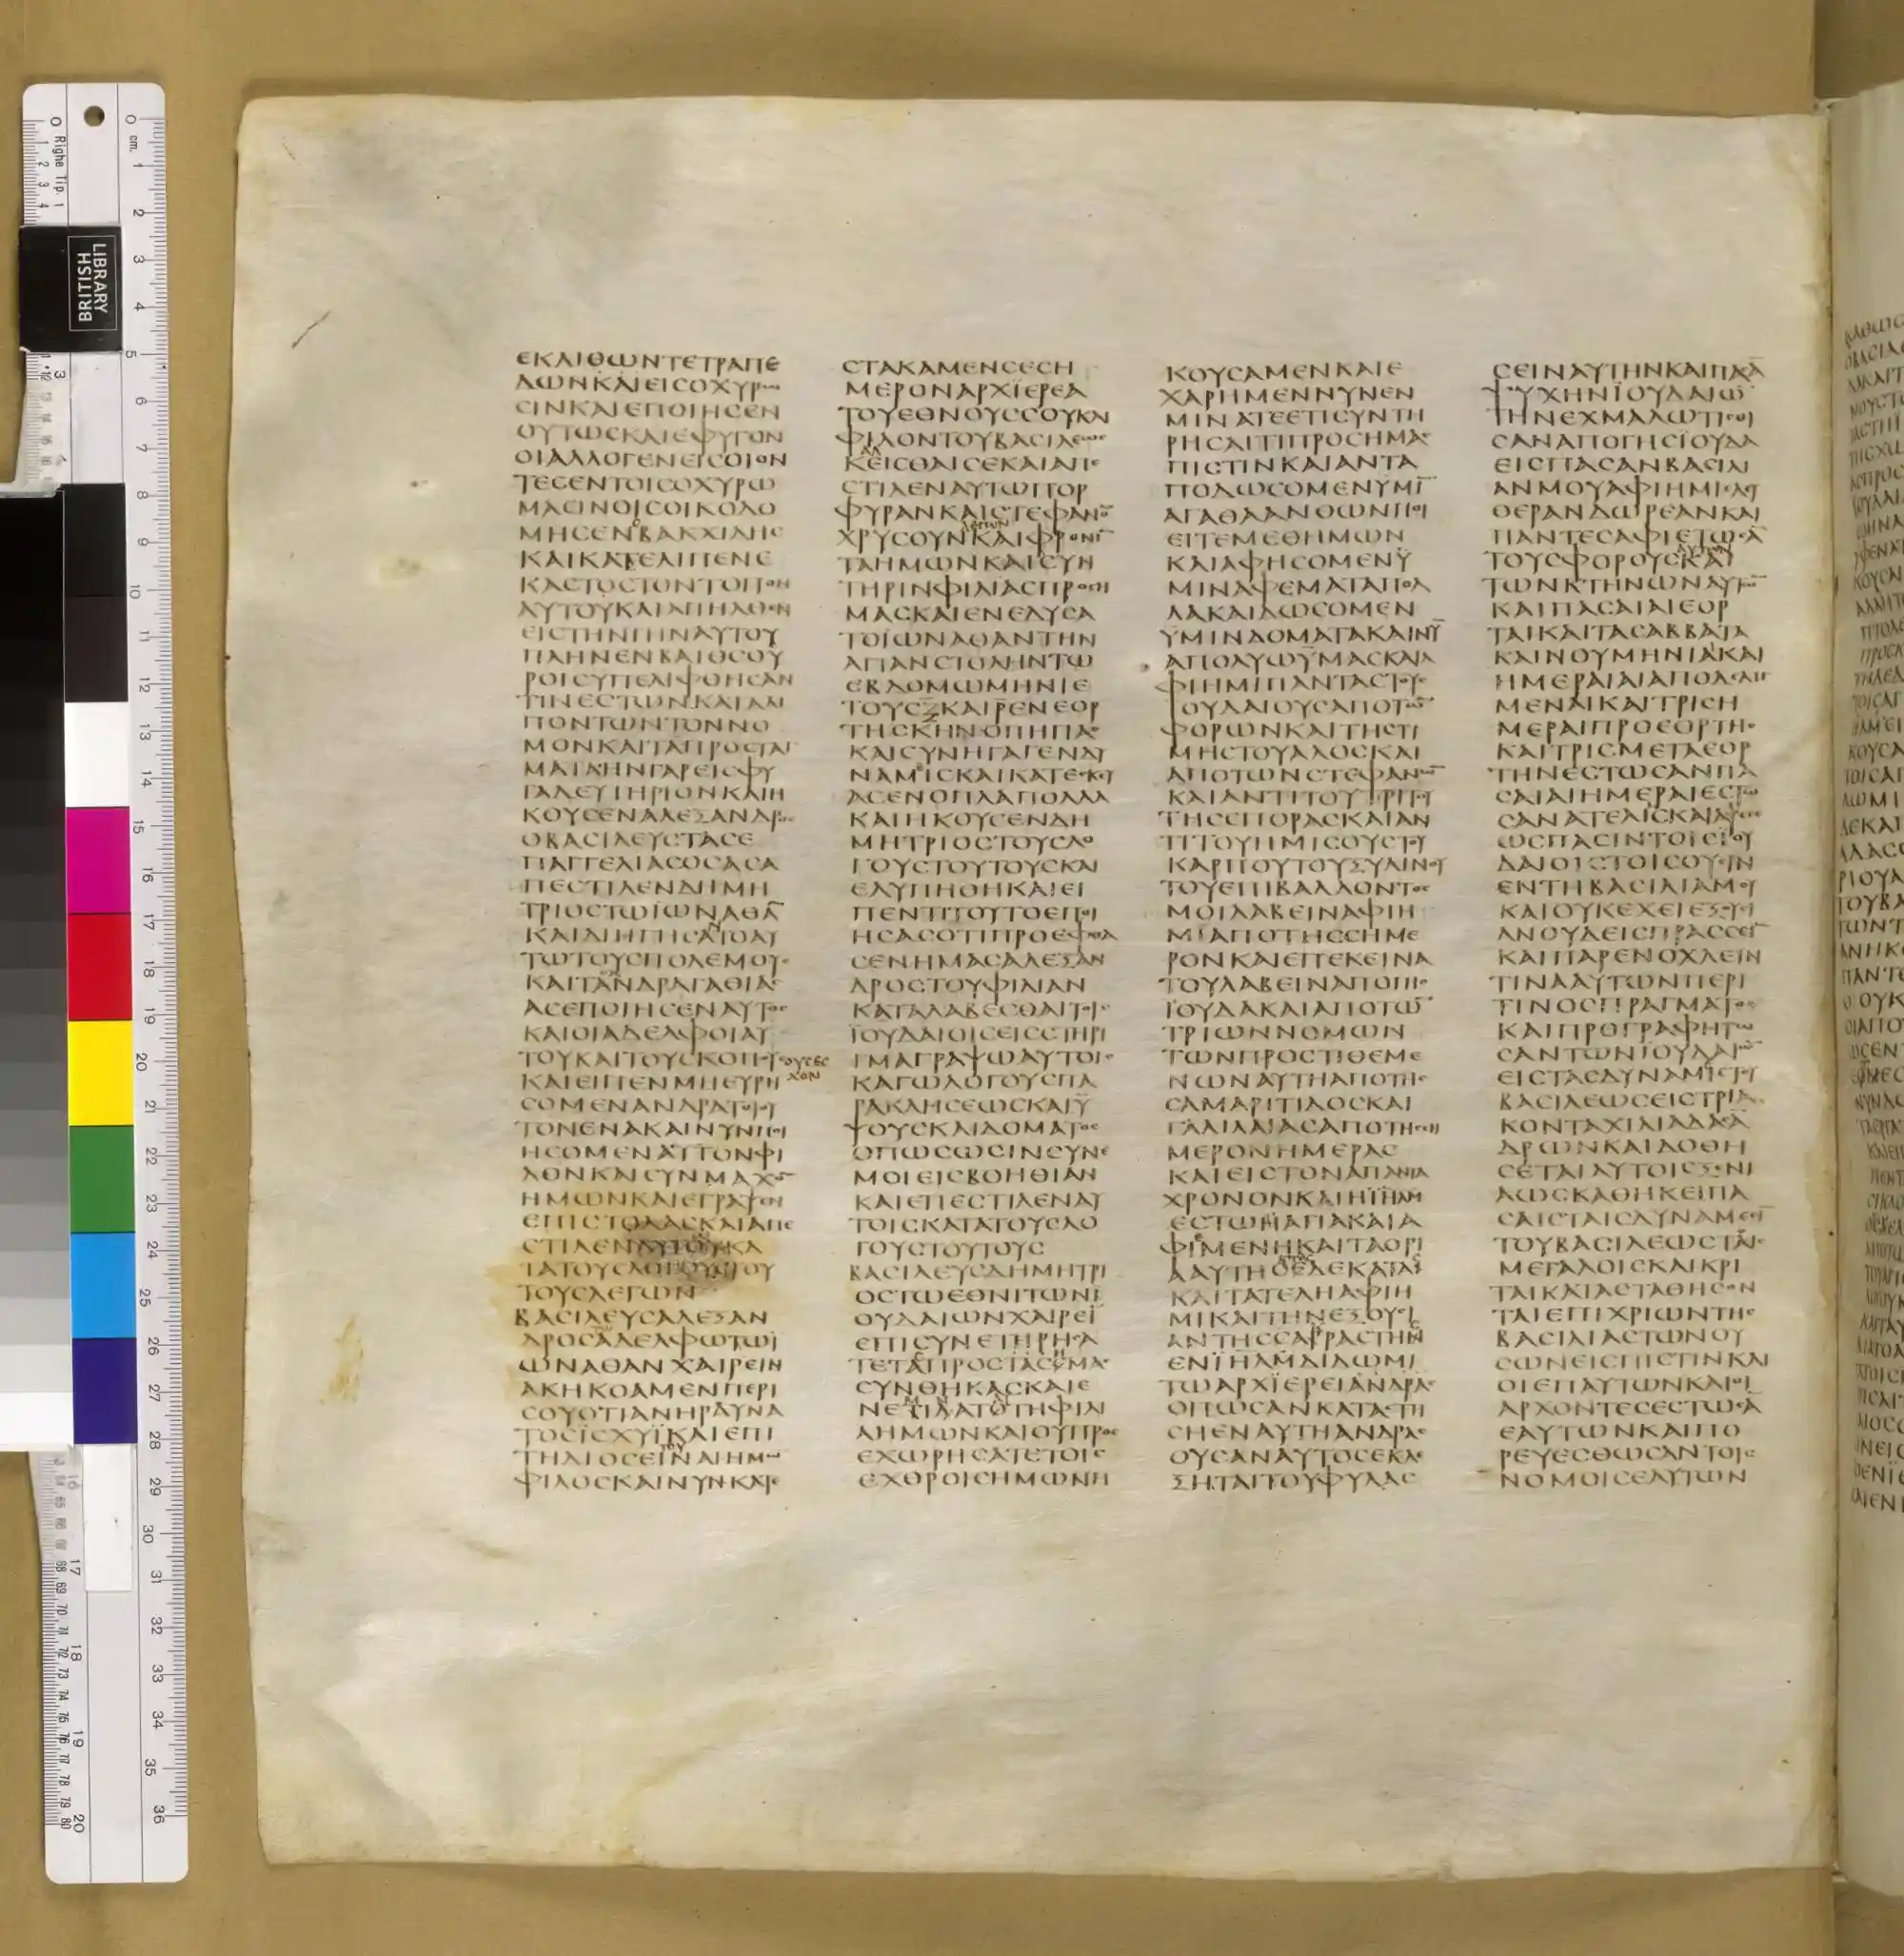 ΕΚ ΛΙΘΩΝ ΤΕΤΡΑΠΕ
ΔΩΝ ΚΑΙ ΕΙΣ ΟΧΥΡΩ
ΣΙΝ ΚΑΙ ΕΠΟΙΗΣΕΝ
ΟΥΤΩΣ ΚΑΙ ΕΦΥΓΟΝ
ΟΙ ΑΛΛΟΓΕΝΕΙΣ ΟΙ ΟΝ
ΤΕΣ ΕΝ ΤΟΙΣ ΟΧΥΡΩ
ΜΑΣΙΝ ΟΙΣ ΟΙΚΟΔΟ
ΜΗΣΕΝ ΒΑΚΧΙΔΗΣ
ΚΑΙ ΚΑΤΕΛΙΠΕΝ Ε
ΚΑΣΤΟΣ ΤΟΝ ΤΟΠΟΝ
ΑΥΤΟΥ ΚΑΙ ΑΠΗΛΘΟΝ
ΕΙΣ ΤΗΝ ΓΗΝ ΑΥΤΟΥ
ΠΛΗΝ ΕΝ ΒΑΙΘΣΟΥ
ΡΟΙΣ ΥΠΕΛΙΦΘΗΣΑΝ
ΤΙΝΕΣ ΤΩΝ ΚΑΤΑΛΙ
ΠΟΝΤΩΝ ΤΟΝ ΝΟ
ΜΟΝ ΚΑΙ ΤΑ ΠΡΟΣΤΑΓ
ΜΑΤΑ ΗΝ ΓΑΡ ΕΙΣ ΦΥ
ΓΑΔΕΥΤΗΡΙΟΝ ΚΑΙ Η
ΚΟΥΣΕΝ ΑΛΕΞΑΝΔΡΟΣ
Ο ΒΑΣΙΛΕΥΣ ΤΑΣ Ε
ΠΑΓΓΕΛΙΑΣ ΟΣΑΣ Α
ΠΕΣΤΙΛΕΝ ΔΗΜΗ
ΤΡΙΟΣ ΤΩ ΙΩΝΑΘΑ̅
ΚΑΙ ΔΙΗΓΗΣΑΝΤΟ ΑΥ
ΤΩ ΤΟΥΣ ΠΟΛΕΜΟΥΣ
ΚΑΙ ΤΑΝΔΡΑΓΑΘΙΑΣ
ΑΣ ΕΠΟΙΗΣΕΝ ΑΥΤΟΣ
ΚΑΙ ΟΙ ΑΔΕΛΦΟΙ ΑΥ
ΤΟΥ ΚΑΙ ΤΟΥΣ ΚΟΠΟΥΣ ΟΥΣ ΕΣ
ΧΟΝ
ΚΑΙ ΕΙΠΕΝ ΜΗ ΕΥΡΗ
ΣΟΜΕΝ ΑΝΔΡΑ ΤΟΙΟΥ
ΤΟΝ ΕΝΑ ΚΑΙ ΝΥΝ ΠΟΙ
ΗΣΟΜΕΝ ΑΥΤΟΝ ΦΙ
ΛΟΝ ΚΑΙ ΣΥΝΜΑΧΟ̅
ΗΜΩΝ ΚΑΙ ΕΓΡΑΨΕΝ
ΕΠΙΣΤΟΛΑΣ ΚΑΙ ΑΠΕ
ΣΤΙΛΕΝ ΑΥΤΩ ΚΑ
ΤΑ ΤΟΥΣ ΛΟΓΟΥΣ ΤΟΥ
ΤΟΥΣ ΛΕΓΩΝ
ΒΑΣΙΛΕΥΣ ΑΛΕΞΑΝ
ΔΡΟΣ ΑΔΕΛΦΩ ΤΩ Ϊ
ΩΝΑΘΑΝ ΧΑΙΡΕΙΝ
ΑΚΗΚΟΑΜΕΝ ΠΕΡΙ
ΣΟΥ ΟΤΙ ΑΝΗΡ ΔΥΝΑ
ΤΟΣ ΪΣΧΥΪ ΚΑΙ ΕΠΙ
ΤΗΔΙΟΣ ΕΙ ΤΟΥ ΕΙΝΑΙ ΗΜΩ̅
ΦΙΛΟΣ ΚΑΙ ΝΥΝ ΚΑΘΕ
ΣΤΑΚΑΜΕΝ ΣΕ ΣΗ
ΜΕΡΟΝ ΑΡΧΪΕΡΕΑ
ΤΟΥ ΕΘΝΟΥΣ ΣΟΥ ΚΑΙ
ΦΙΛΟΝ ΤΟΥ ΒΑΣΙΛΕΩΣ
ΚΑΛΕΙΣΘΑΙ ΣΕ ΚΑΙ ΑΠΕ
ΣΤΙΛΕΝ ΑΥΤΩ ΠΟΡ
ΦΥΡΑΝ ΚΑΙ ΣΤΕΦΑΝΟ̅
ΧΡΥΣΟΥΝ ΚΑΙ ΦΡΟΝΙ̅
ΤΑ ΗΜΩΝ ΚΑΙ ΣΥΝ
ΤΗΡΙΝ ΦΙΛΙΑΣ ΠΡΟΣ Η
ΜΑΣ ΚΑΙ ΕΝΕΔΥΣΑ
ΤΟ ΪΩΝΑΘΑΝ ΤΗΝ
ΑΓΙΑΝ ΣΤΟΛΗΝ ΤΩ
ΕΒΔΟΜΩ ΜΗΝΙ Ε
ΤΟΥΣ Ξ ΚΑΙ Ρ ΕΝ ΕΟΡ
ΤΗ ΣΚΗΝΟΠΗΓΙΑΣ
ΚΑΙ ΣΥΝΗΓΑΓΕΝ ΔΥ
ΝΑΜΙΣ ΚΑΙ ΚΑΤΕΣΚΕΥ
ΑΣΕΝ ΟΠΛΑ ΠΟΛΛΑ
ΚΑΙ ΗΚΟΥΣΕΝ ΔΗ
ΜΗΤΡΙΟΣ ΤΟΥΣ ΛΟ
ΓΟΥΣ ΤΟΥΤΟΥΣ ΚΑΙ
ΕΛΥΠΗΘΗ ΚΑΙ ΕΙ
ΠΕΝ ΤΙ ΤΟΥΤΟ ΕΠΟΙ
ΗΣΑΣ ΟΤΙ ΠΡΟΕΦΘΑ
ΣΕΝ ΗΜΑΣ ΑΛΕΞΑΝ
ΔΡΟΣ ΤΟΥ ΦΙΛΙΑΝ
ΚΑΤΑΛΑΒΕΣΘΑΙ ΤΟΙΣ
ΪΟΥΔΑΙΟΙΣ ΕΙΣ ΣΤΗΡΙ
ΓΜΑ ΓΡΑΨΩ ΑΥΤΟΙΣ
ΚΑΓΩ ΛΟΓΟΥΣ ΠΑ
ΡΑΚΛΗΣΕΩΣ ΚΑΙ Ϋ
ΨΟΥΣ ΚΑΙ ΔΟΜΑΤΟΣ
ΟΠΩΣ ΩΣΙΝ ΣΥΝ Ε
ΜΟΙ ΕΙΣ ΒΟΗΘΙΑΝ
ΚΑΙ ΕΠΕΣΤΙΛΕΝ ΑΥ
ΤΟΙΣ ΚΑΤΑ ΤΟΥΣ ΛΟ
ΓΟΥΣ ΤΟΥΤΟΥΣ
ΒΑΣΙΛΕΥΣ ΔΗΜΗΤΡΙ
ΟΣ ΤΩ ΕΘΝΙ ΤΩΝ Ϊ
ΟΥΔΑΙΩΝ ΧΑΙΡΕΙ̅
ΕΠΙ ΣΥΝΕΤΗΡΗΣΑ
ΤΕ ΤΑΣ ΠΡΟΣ ΤΑΣ ΫΜΑΣ
ΣΥΝΘΗΚΑΣ ΚΑΙ Ε
ΝΕΜΙΝΑΤΕ ΤΗ ΦΙΛΙ
Α ΗΜΩΝ ΚΑΙ ΟΥ ΠΡΟΣ
ΕΧΩΡΗΣΑΤΕ ΤΟΙΣ
ΕΧΘΡΟΙΣ ΗΜΩΝ Η
ΚΟΥΣΑΜΕΝ ΚΑΙ Ε
ΧΑΡΗΜΕΝ ΝΥΝ ΕΝ
ΜΙΝΑΤΕ ΕΤΙ ΣΥΝΤΗ
ΡΗΣΑΙ ΤΙ ΠΡΟΣ ΗΜΑΣ
ΠΙΣΤΙΝ ΚΑΙ ΑΝΤΑ
ΠΟΔΩΣΟΜΕΝ ΥΜΙ̅
ΑΓΑΘΑ ΑΝΘ ΩΝ ΠΟΙ
ΕΙΤΕ ΜΕΘ ΗΜΩΝ
ΚΑΙ ΑΦΗΣΟΜΕΝ Ϋ
ΜΙΝ ΑΦΕΜΑΤΑ ΠΟΛ
ΛΑ ΚΑΙ ΔΩΣΟΜΕΝ
ΫΜΙΝ ΔΟΜΑΤΑ ΚΑΙ ΝΥ̅
ΑΠΟΛΥΩ ΫΜΑΣ ΚΑΙ Α
ΦΙΗΜΙ ΠΑΝΤΑΣ ΤΟΥΣ
ΪΟΥΔΑΙΟΥΣ ΑΠΟ ΤΩ̅
ΦΟΡΩΝ ΚΑΙ ΤΗΣ ΤΙ
ΜΗΣ ΤΟΥ ΑΛΟΣ ΚΑΙ
ΑΠΟ ΤΩΝ ΣΤΕΦΑΝΩ̅
ΚΑΙ ΑΝΤΙ ΤΟΥ ΤΡΙΤΟΥ
ΤΗΣ ΣΠΟΡΑΣ ΚΑΙ ΑΝ
ΤΙ ΤΟΥ ΗΜΙΣΟΥΣ ΤΟΥ
ΚΑΡΠΟΥ ΤΟΥ ΞΥΛΙΝΟΥ
ΤΟΥ ΕΠΙΒΑΛΛΟΝΤΟΣ
ΜΟΙ ΛΑΒΕΙΝ ΑΦΙΗ
ΜΙ ΑΠΟ ΤΗΣ ΣΗΜΕ
ΡΟΝ ΚΑΙ ΕΠΕΚΕΙΝΑ
ΤΟΥ ΛΑΒΕΙΝ ΑΠΟ ΓΗΣ
ΪΟΥΔΑ ΚΑΙ ΑΠΟ ΤΩ̅
ΤΡΙΩΝ ΝΟΜΩΝ
ΤΩΝ ΠΡΟΣΤΙΘΕΜΕ
ΝΩΝ ΑΥΤΗ ΑΠΟ ΤΗΣ
ΣΑΜΑΡΙΤΙΔΟΣ ΚΑΙ
ΓΑΛΙΛΑΙΑΣ ΑΠΟ ΤΗΣ ΣΗ
ΜΕΡΟΝ ΗΜΕΡΑΣ
ΚΑΙ ΕΙΣ ΤΟΝ ΑΠΑΝΤΑ
ΧΡΟΝΟΝ ΚΑΙ ΗΪΛΗΜ
ΕΣΤΩ ΑΓΙΑ ΚΑΙ Α
ΦΙΜΕΝΗ ΚΑΙ ΤΑ ΟΡΙ
Α ΑΥΤΗΣ ΔΕΚΑΤΑΣ
ΚΑΙ ΤΑ ΤΕΛΗ ΑΦΙΗ
ΜΙ ΚΑΙ ΤΗΝ ΕΞΟΥΣΙ
ΑΝ ΤΗΣ ΑΚΡΑΣ ΤΗΣ
ΕΝ ΪΗΛΜ ΔΙΔΩΜΙ
ΤΩ ΑΡΧΪΕΡΕΙ ΑΝΔΡΑΣ
ΟΠΩΣ ΑΝ ΚΑΤΑΣΤΗ
ΣΗ ΕΝ ΑΥΤΗ ΑΝΔΡΑΣ
ΟΥΣ ΑΝ ΑΥΤΟΣ ΕΚΛΕ
ΞΗΤΑΙ ΤΟΥ ΦΥΛΑΣ
ΣΕΙΝ ΑΥΤΗΝ ΚΑΙ ΠΑΣΑ̅
ΨΥΧΗΝ ΪΟΥΔΑΙΩ̅
ΤΗΝ ΕΧΜΑΛΩΤΙΣΘΙ
ΣΑΝ ΑΠΟ ΓΗΣ ΪΟΥΔΑ
ΕΙΣ ΠΑΣΑΝ ΒΑΣΙΛΙ
ΑΝ ΜΟΥ ΑΦΙΗΜΙ ΕΛΕΥ
ΘΕΡΑΝ ΔΩΡΕΑΝ ΚΑΙ
ΠΑΝΤΕΣ ΑΦΙΕΤΩΣΑ̅
ΤΟΥΣ ΦΟΡΟΥΣ ΑΥΤΩΝ ΚΑΙ
ΤΩΝ ΚΤΗΝΩΝ ΑΥΤΩ̅
ΚΑΙ ΠΑΣΑΙ ΑΙ ΕΟΡ
ΤΑΙ ΚΑΙ ΤΑ ΣΑΒΒΑΤΑ
ΚΑΙ ΝΟΥΜΗΝΙΑΙ ΚΑΙ
ΗΜΕΡΑΙ ΑΙ ΑΠΟΔΕΔΙΓ
ΜΕΝΑΙ ΚΑΙ ΤΡΙΣ Η
ΜΕΡΑΙ ΠΡΟ ΕΟΡΤΗΣ
ΚΑΙ ΤΡΙΣ ΜΕΤΑ ΕΟΡ
ΤΗΝ ΕΣΤΩΣΑΝ ΠΑ
ΣΑΙ ΑΙ ΗΜΕΡΑΙ ΕΣΤΩ
ΣΑΝ ΑΤΕΛΙΣ ΚΑΙ ΑΦΕΣΕ
ΩΣ ΠΑΣΙΝ ΤΟΙΣ ΪΟΥ
ΔΑΙΟΙΣ ΤΟΙΣ ΟΥΣΙΝ
ΕΝ ΤΗ ΒΑΣΙΛΙΑ ΜΟΥ
ΚΑΙ ΟΥΚ ΕΧΕΙ ΕΞΟΥΣΙ
ΑΝ ΟΥΔΕΙΣ ΠΡΑΣΣΕΙ̅
ΚΑΙ ΠΑΡΕΝΟΧΛΕΙΝ
ΤΙΝΑ ΑΥΤΩΝ ΠΕΡΙ
ΤΙΝΟΣ ΠΡΑΓΜΑΤΟΣ
ΚΑΙ ΠΡΟΓΡΑΦΗΤΩ
ΣΑΝ ΤΩΝ ΪΟΥΔΑΙΩ̅
ΕΙΣ ΤΑΣ ΔΥΝΑΜΙΣ ΤΟΥ
ΒΑΣΙΛΕΩΣ ΕΙΣ ΤΡΙΑ
ΚΟΝΤΑ ΧΙΛΙΑΔΑΣ Α̅
ΔΡΩΝ ΚΑΙ ΔΟΘΗ
ΣΕΤΑΙ ΑΥΤΟΙΣ ΞΕΝΙ
ΑΩΣ ΚΑΘΗΚΕΙ ΠΑ
ΣΑΙΣ ΤΑΙΣ ΔΥΝΑΜΕΣΙ̅
ΤΟΥ ΒΑΣΙΛΕΩΣ ΤΑΙΣ
ΜΕΓΑΛΟΙΣ ΚΑΙ ΚΡΙ
ΤΑΙ ΚΑΙ ΑΣΤΑΘΗΣΟΝ
ΤΑΙ ΕΠΙ ΧΡΙΩΝ ΤΗΣ
ΒΑΣΙΛΙΑΣ ΤΩΝ ΟΥ
ΣΩΝ ΕΙΣ ΠΙΣΤΙΝ ΚΑΙ
ΟΙ ΕΠ ΑΥΤΩΝ ΚΑΙ ΟΙ
ΑΡΧΟΝΤΕΣ ΕΣΤΩΣΑ̅
Ε ΑΥΤΩΝ ΚΑΙ ΠΟ
ΡΕΥΕΣΘΩΣΑΝ ΤΟΙΣ
ΝΟΜΟΙΣ ΕΑΥΤΩΝ
BRITISH
LIBRARY